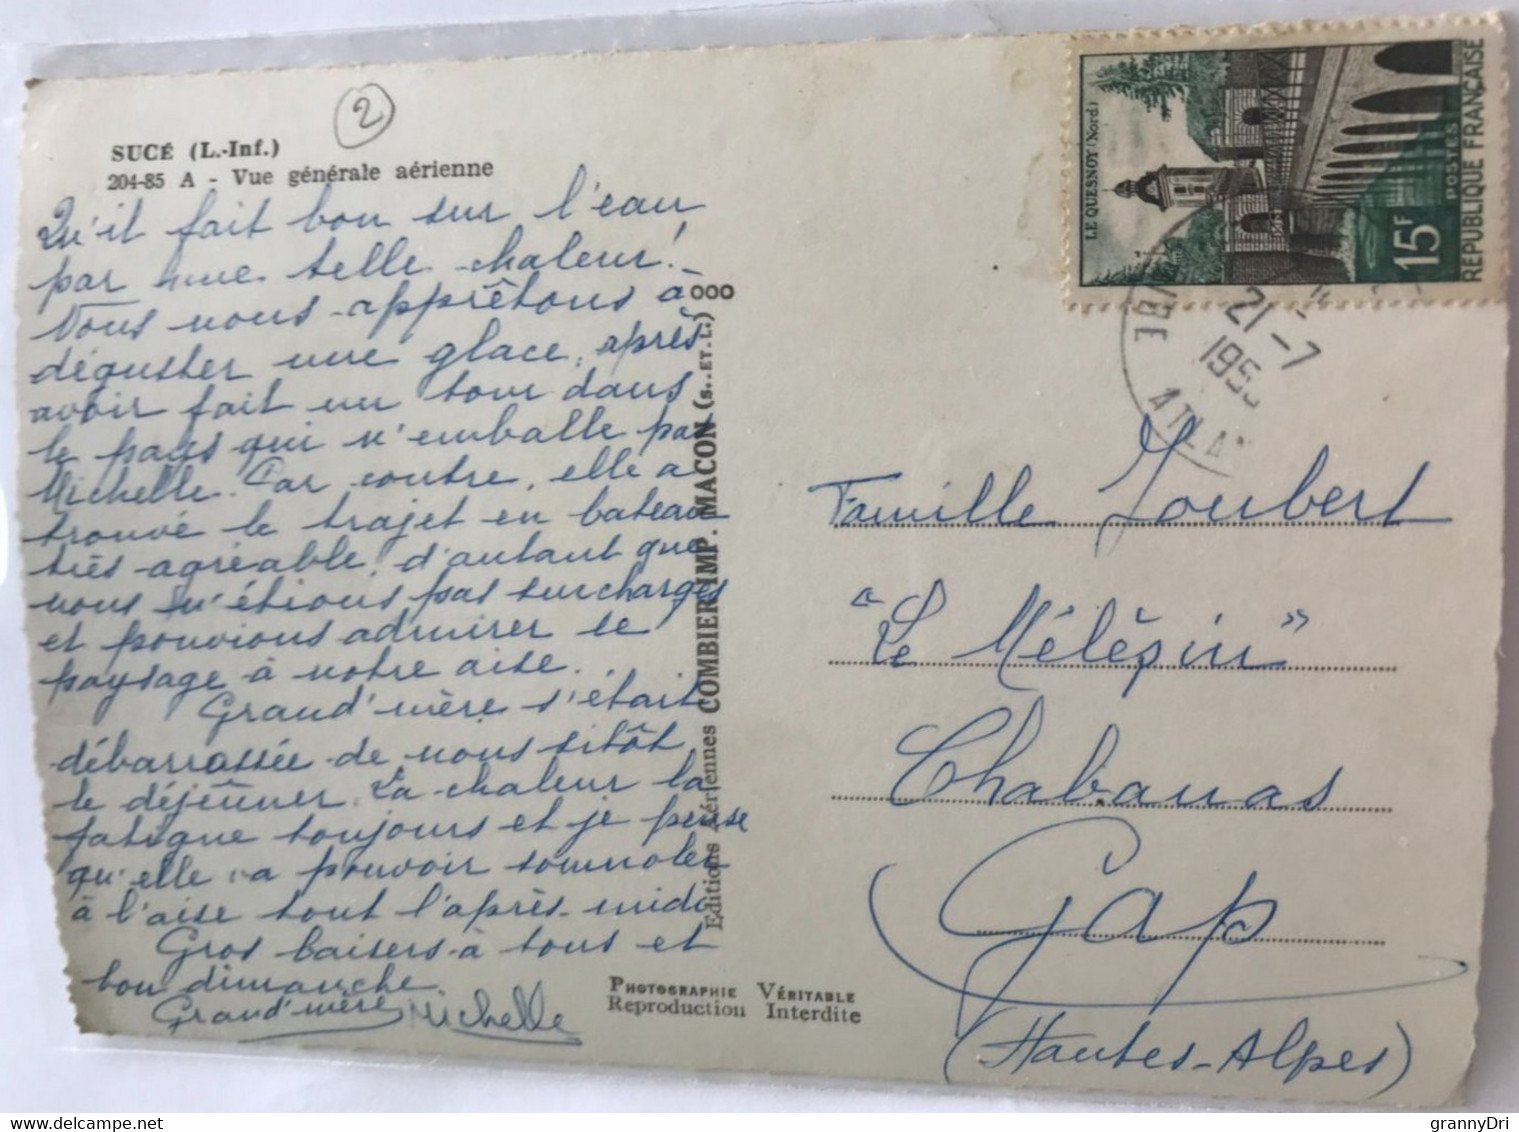 2
SUCÉ (L.-Inf.)
204-85 A - Vue générale aérienne
Qu'il fait bon sur l'eau
par une telle chaleur!
Nous nous apprêtons à
déguster une glace, après
avoir fait un tour dans
le pays qui n'emballe pas
Michelle. Par contre, elle a
trouvé le trajet en bateau
très agréable, d'autant que
nous n'étions pas surchargés
et pouvions admirer le
paysage à notre aise.
Grand'mère s'était
débarrassée de nous sitôt
le déjeûner. La chaleur la
fatigue toujours et je pense
qu'elle va pouvoir somnoler
à l'aise tout l'après-midi
Gros baisers à tous et
bon dimanche.
Grand'mère Michelle
ooo
Editions Aériennes COMBIER IMP. MACON (S.-ET-L.)
PHOTOGRAPHIE VÉRITABLE
Reproduction Interdite
LE QUESNOY (Nord)
15F
POSTES
RÉPUBLIQUE FRANÇAISE
21-7
195
Famille Joubert
"Le Mélèzin"
Chabanas
Gap
(Hautes-Alpes)
grannyDri